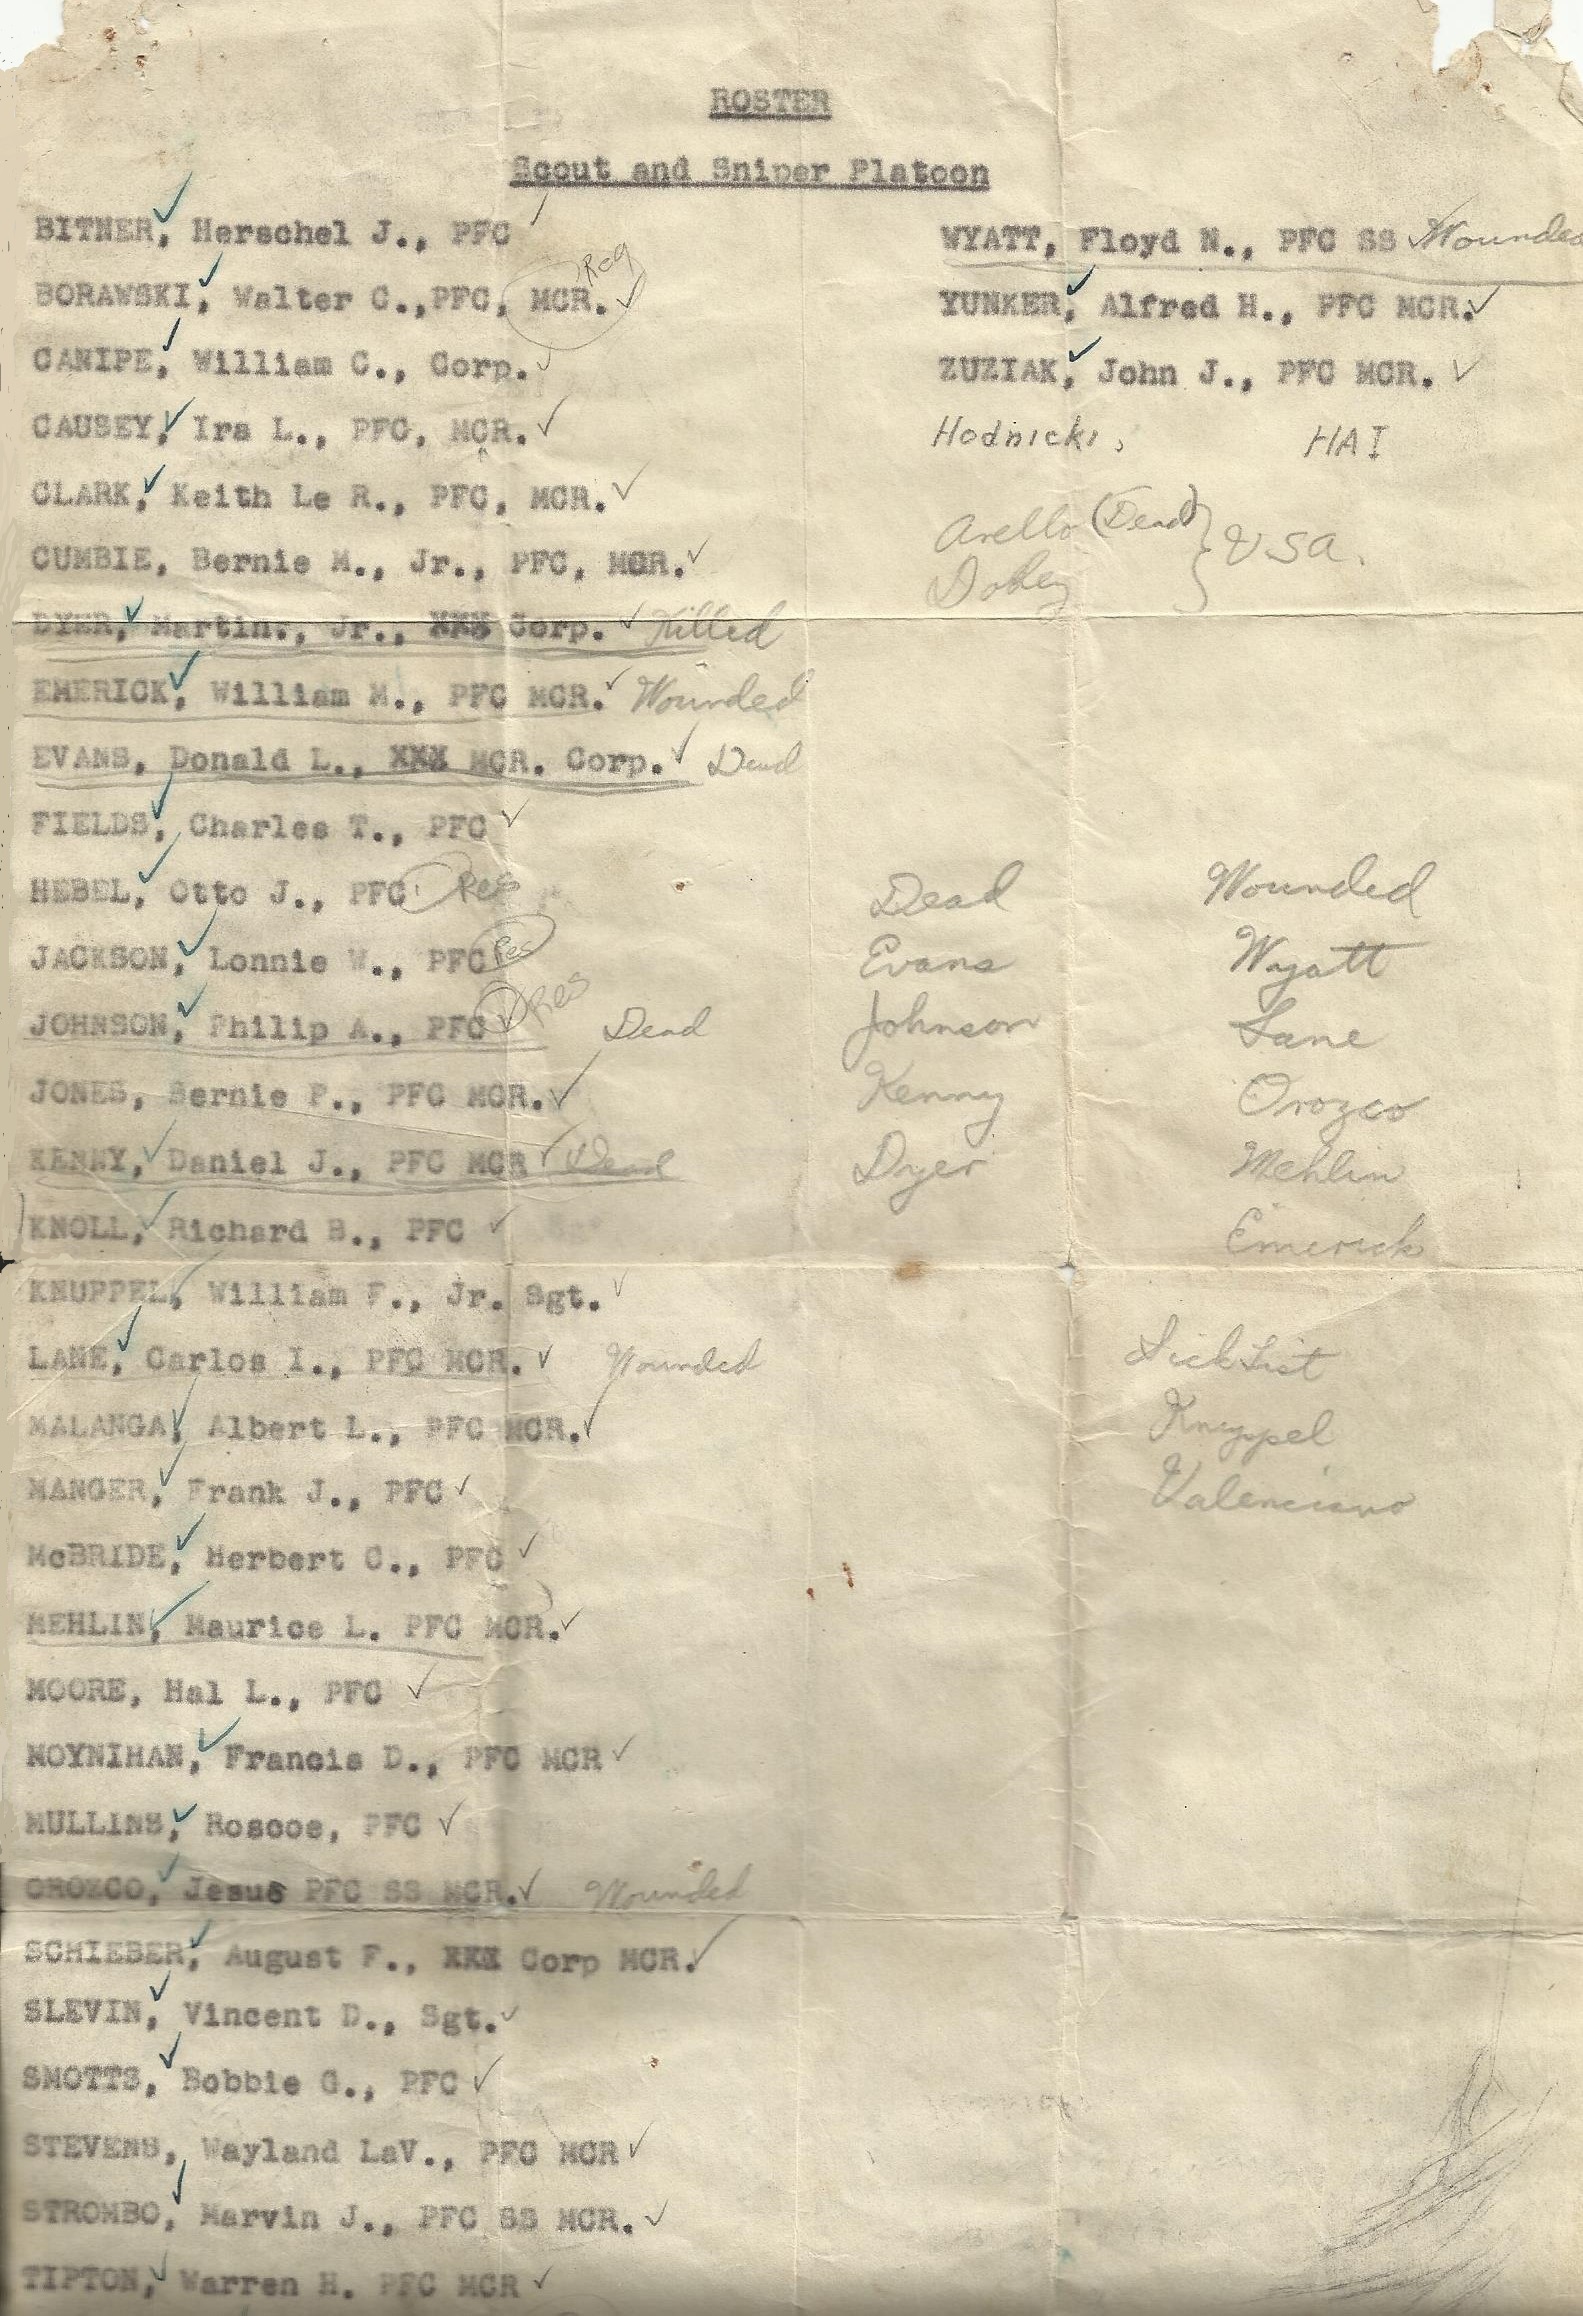 ROSTER
Scout and Sniper Platoon
BITNER, Herschel J., PFC
BORAWSKI, Walter C.,PFC, MCR. Reg
CANIPE, William C., Corp.
CAUSEY, Ira L., PFC, MCR.
CLARK, Keith Le R., PFC, MCR.
CUMBIE, Bernie M., Jr., PFC, MCR.
DYER, Martin., Jr., XXX Corp. Killed
EMERICK, William M., PFC MCR. Wounded
EVANS, Donald L., XXX MCR. Corp. Dead
FIELDS, Charles T., PFC
HEBEL, Otto J., PFC Res
JACKSON, Lonnie W., PFC Res
JOHNSON, Philip A., PFC Res Dead
JONES, Bernie P., PFC MCR.
KENNY, Daniel J., PFC MCR Dead
KNOLL, Richard B., PFC
KNUPPEL, William F., Jr. Sgt.
LANE, Carlos I., PFC MCR. Wounded
MALANGA, Albert L., PFC MCR.
MANGER, Frank J., PFC
McBRIDE, Herbert C., PFC
MEHLIN, Maurice L. PFC MCR.
MOORE, Hal L., PFC
MOYNIHAN, Francis D., PFC MCR
MULLINS, Roscoe, PFC
OROZCO, Jesus PFC SS MCR. Wounded
SCHIEBER, August F., XXX Corp MCR.
SLEVIN, Vincent D., Sgt.
SMOTTS, Bobbie G., PFC
STEVENS, Wayland LaV., PFC MCR
STROMBO, Marvin J., PFC SS MCR.
TIPTON, Warren H. PFC MCR
WYATT, Floyd N., PFC SS Wounded
YUNKER, Alfred H., PFC MCR.
ZUZIAK, John J., PFC MCR.
Hodnicki, HAI
Arello (Dead) } USA.
Dobey
Dead
Evans
Johnson
Kenny
Dyer
Wounded
Wyatt
Lane
Orozco
Mehlin
Emerick
Sick List
Knuppel
Valenciano